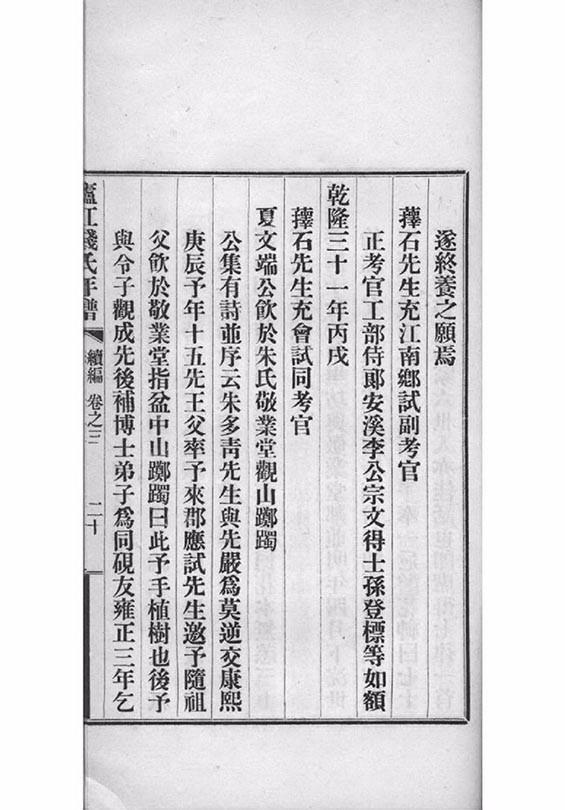 遂終養之願焉
蘀石先生充江南鄉試副考官
正考官工部侍郞安溪李公宗文得士孫登標等如額
乾隆三十一年丙戌
蘀石先生充會試同考官
夏文端公飮於朱氏敬業堂觀山躑躅
公集有詩並序云朱多青先生與先嚴爲莫逆交康熙
庚辰予年十五先王父率予來郡應試先生邀予隨祖
父飮於敬業堂指盆中山躑躅曰此予手植樹也後予
與令子觀成先後補博士弟子爲同硯友雍正三年乞
廬江錢氏年譜 續編 卷之三 二十